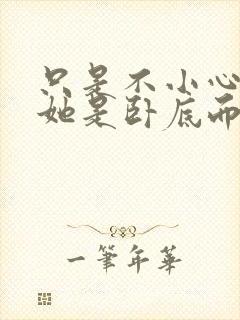 只是不小心
她是卧底而
一筆年華